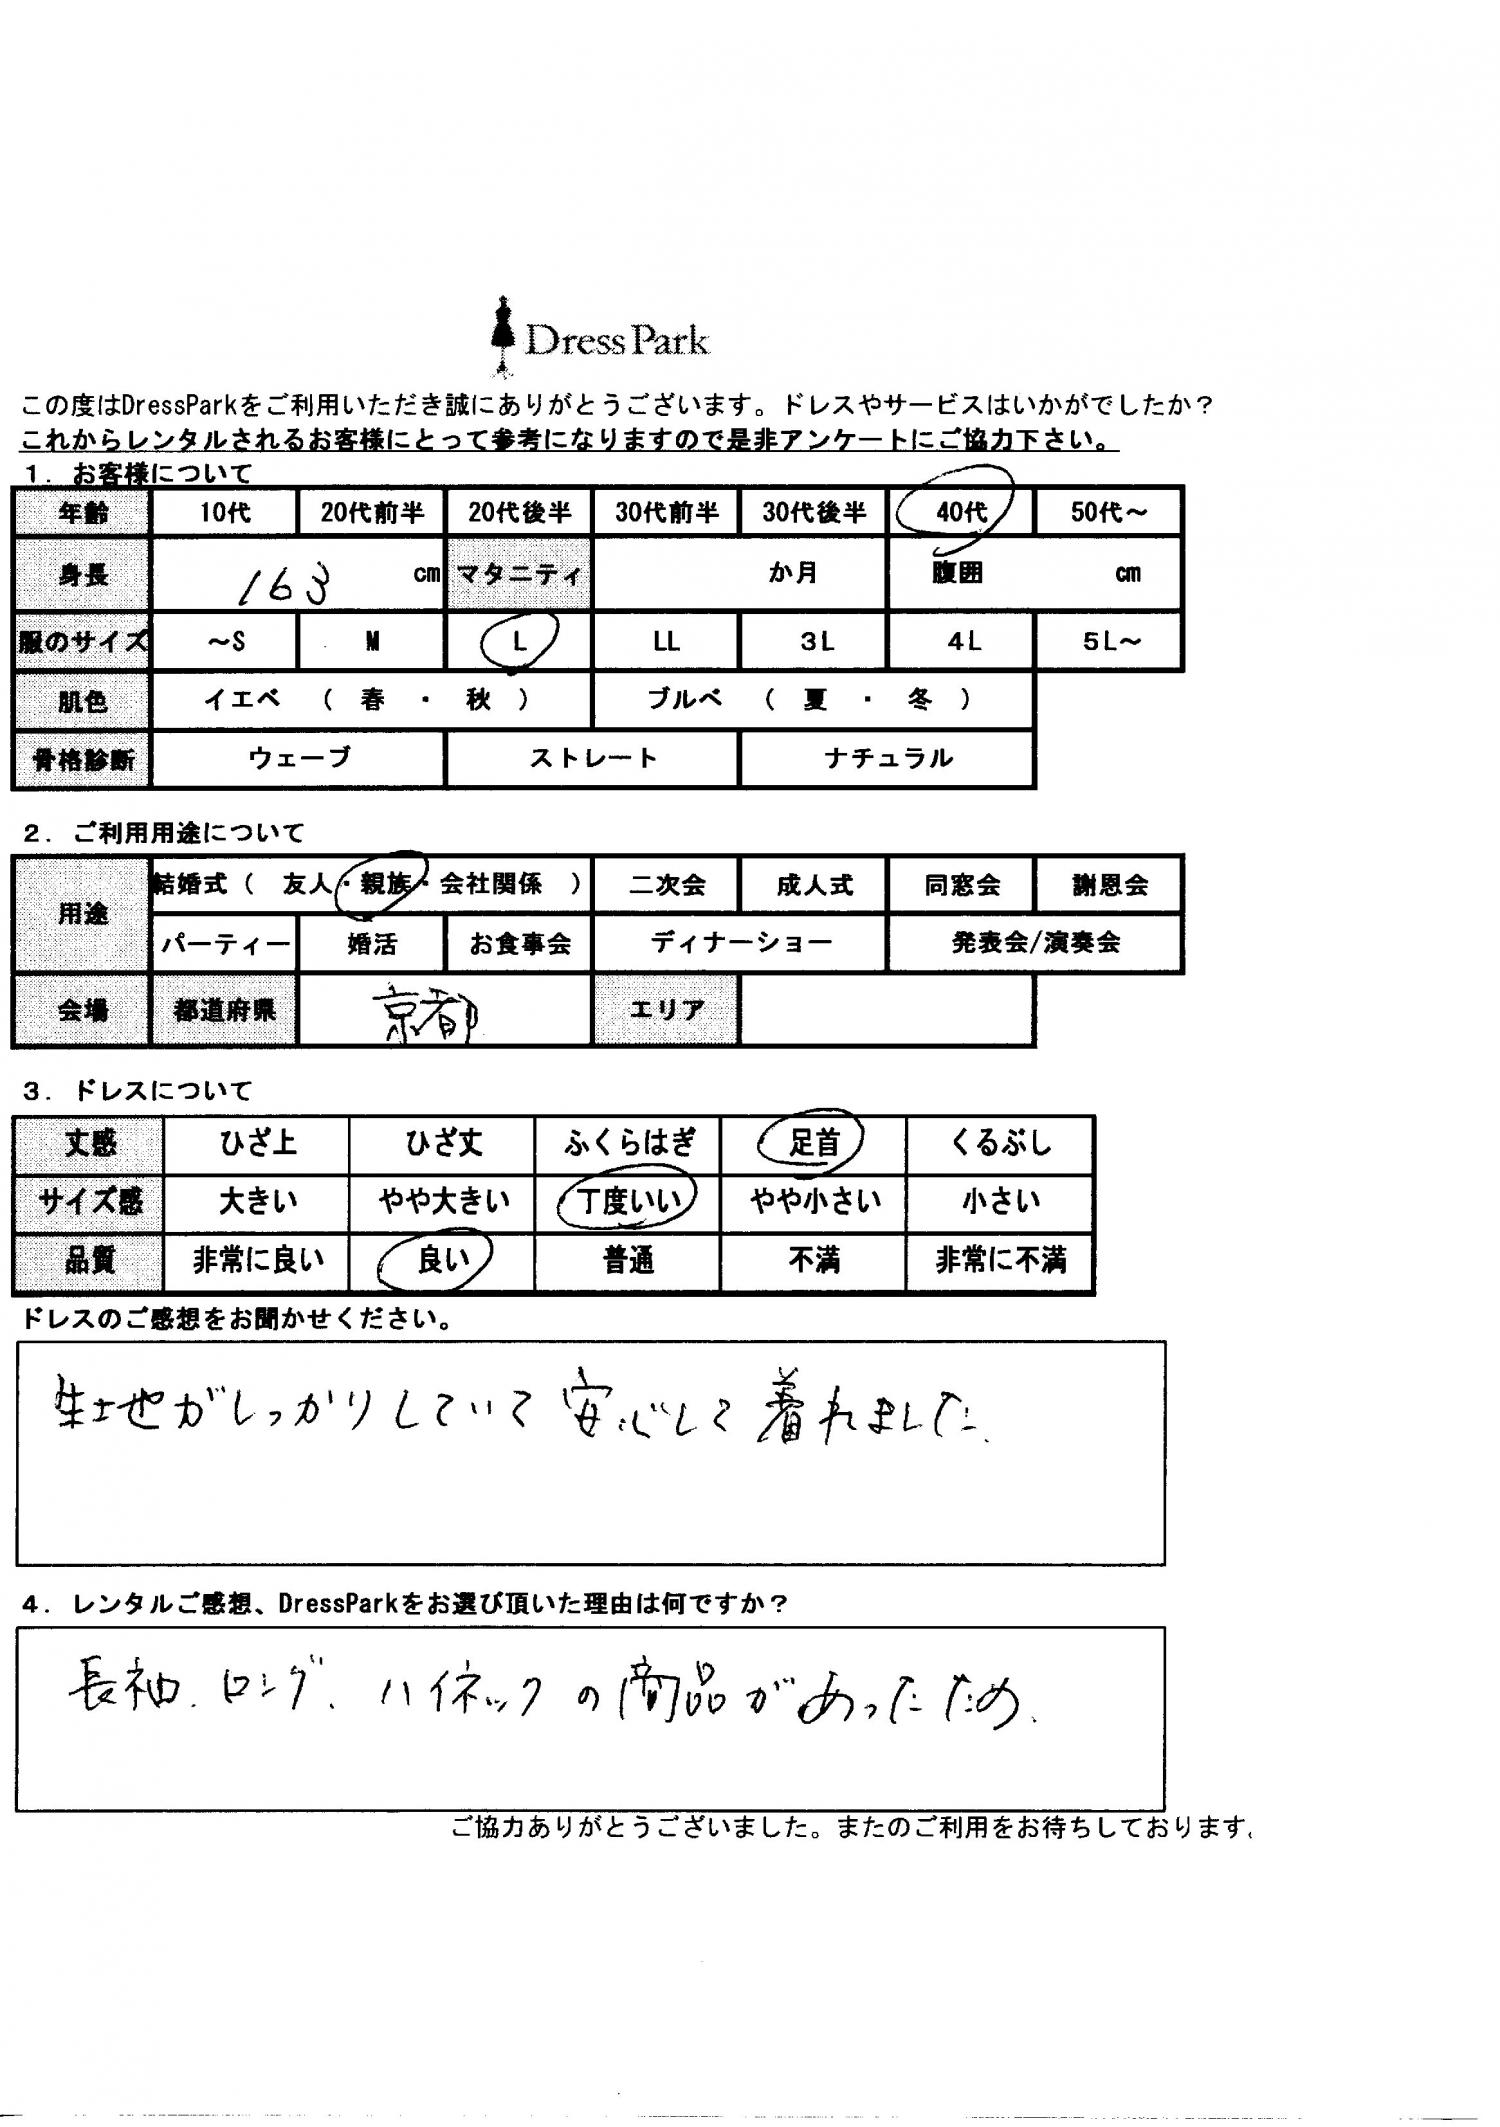 DressPark
この度はDressParkをご利用いただき誠にありがとうございます。ドレスやサービスはいかがでしたか？
これからレンタルされるお客様にとって参考になりますので是非アンケートにご協力下さい。
１．お客様について
年齢 10代 20代前半 20代後半 30代前半 30代後半 40代 50代～
身長 163 cm マタニティ か月 腹囲 cm
服のサイズ ～S M L LL ３L ４L ５L～
肌色 イエベ （ 春 ・ 秋 ） ブルベ （ 夏 ・ 冬 ）
骨格診断 ウェーブ ストレート ナチュラル
２．ご利用用途について
用途 結婚式（ 友人・親族・会社関係 ） 二次会 成人式 同窓会 謝恩会
パーティー 婚活 お食事会 ディナーショー 発表会/演奏会
会場 都道府県 京都 エリア
３．ドレスについて
丈感 ひざ上 ひざ丈 ふくらはぎ 足首 くるぶし
サイズ感 大きい やや大きい 丁度いい やや小さい 小さい
品質 非常に良い 良い 普通 不満 非常に不満
ドレスのご感想をお聞かせください。
生地がしっかりしていて安心して着れました.
４．レンタルご感想、DressParkをお選び頂いた理由は何ですか？
長袖、ロング、ハイネックの商品があったため.
ご協力ありがとうございました。またのご利用をお待ちしております。